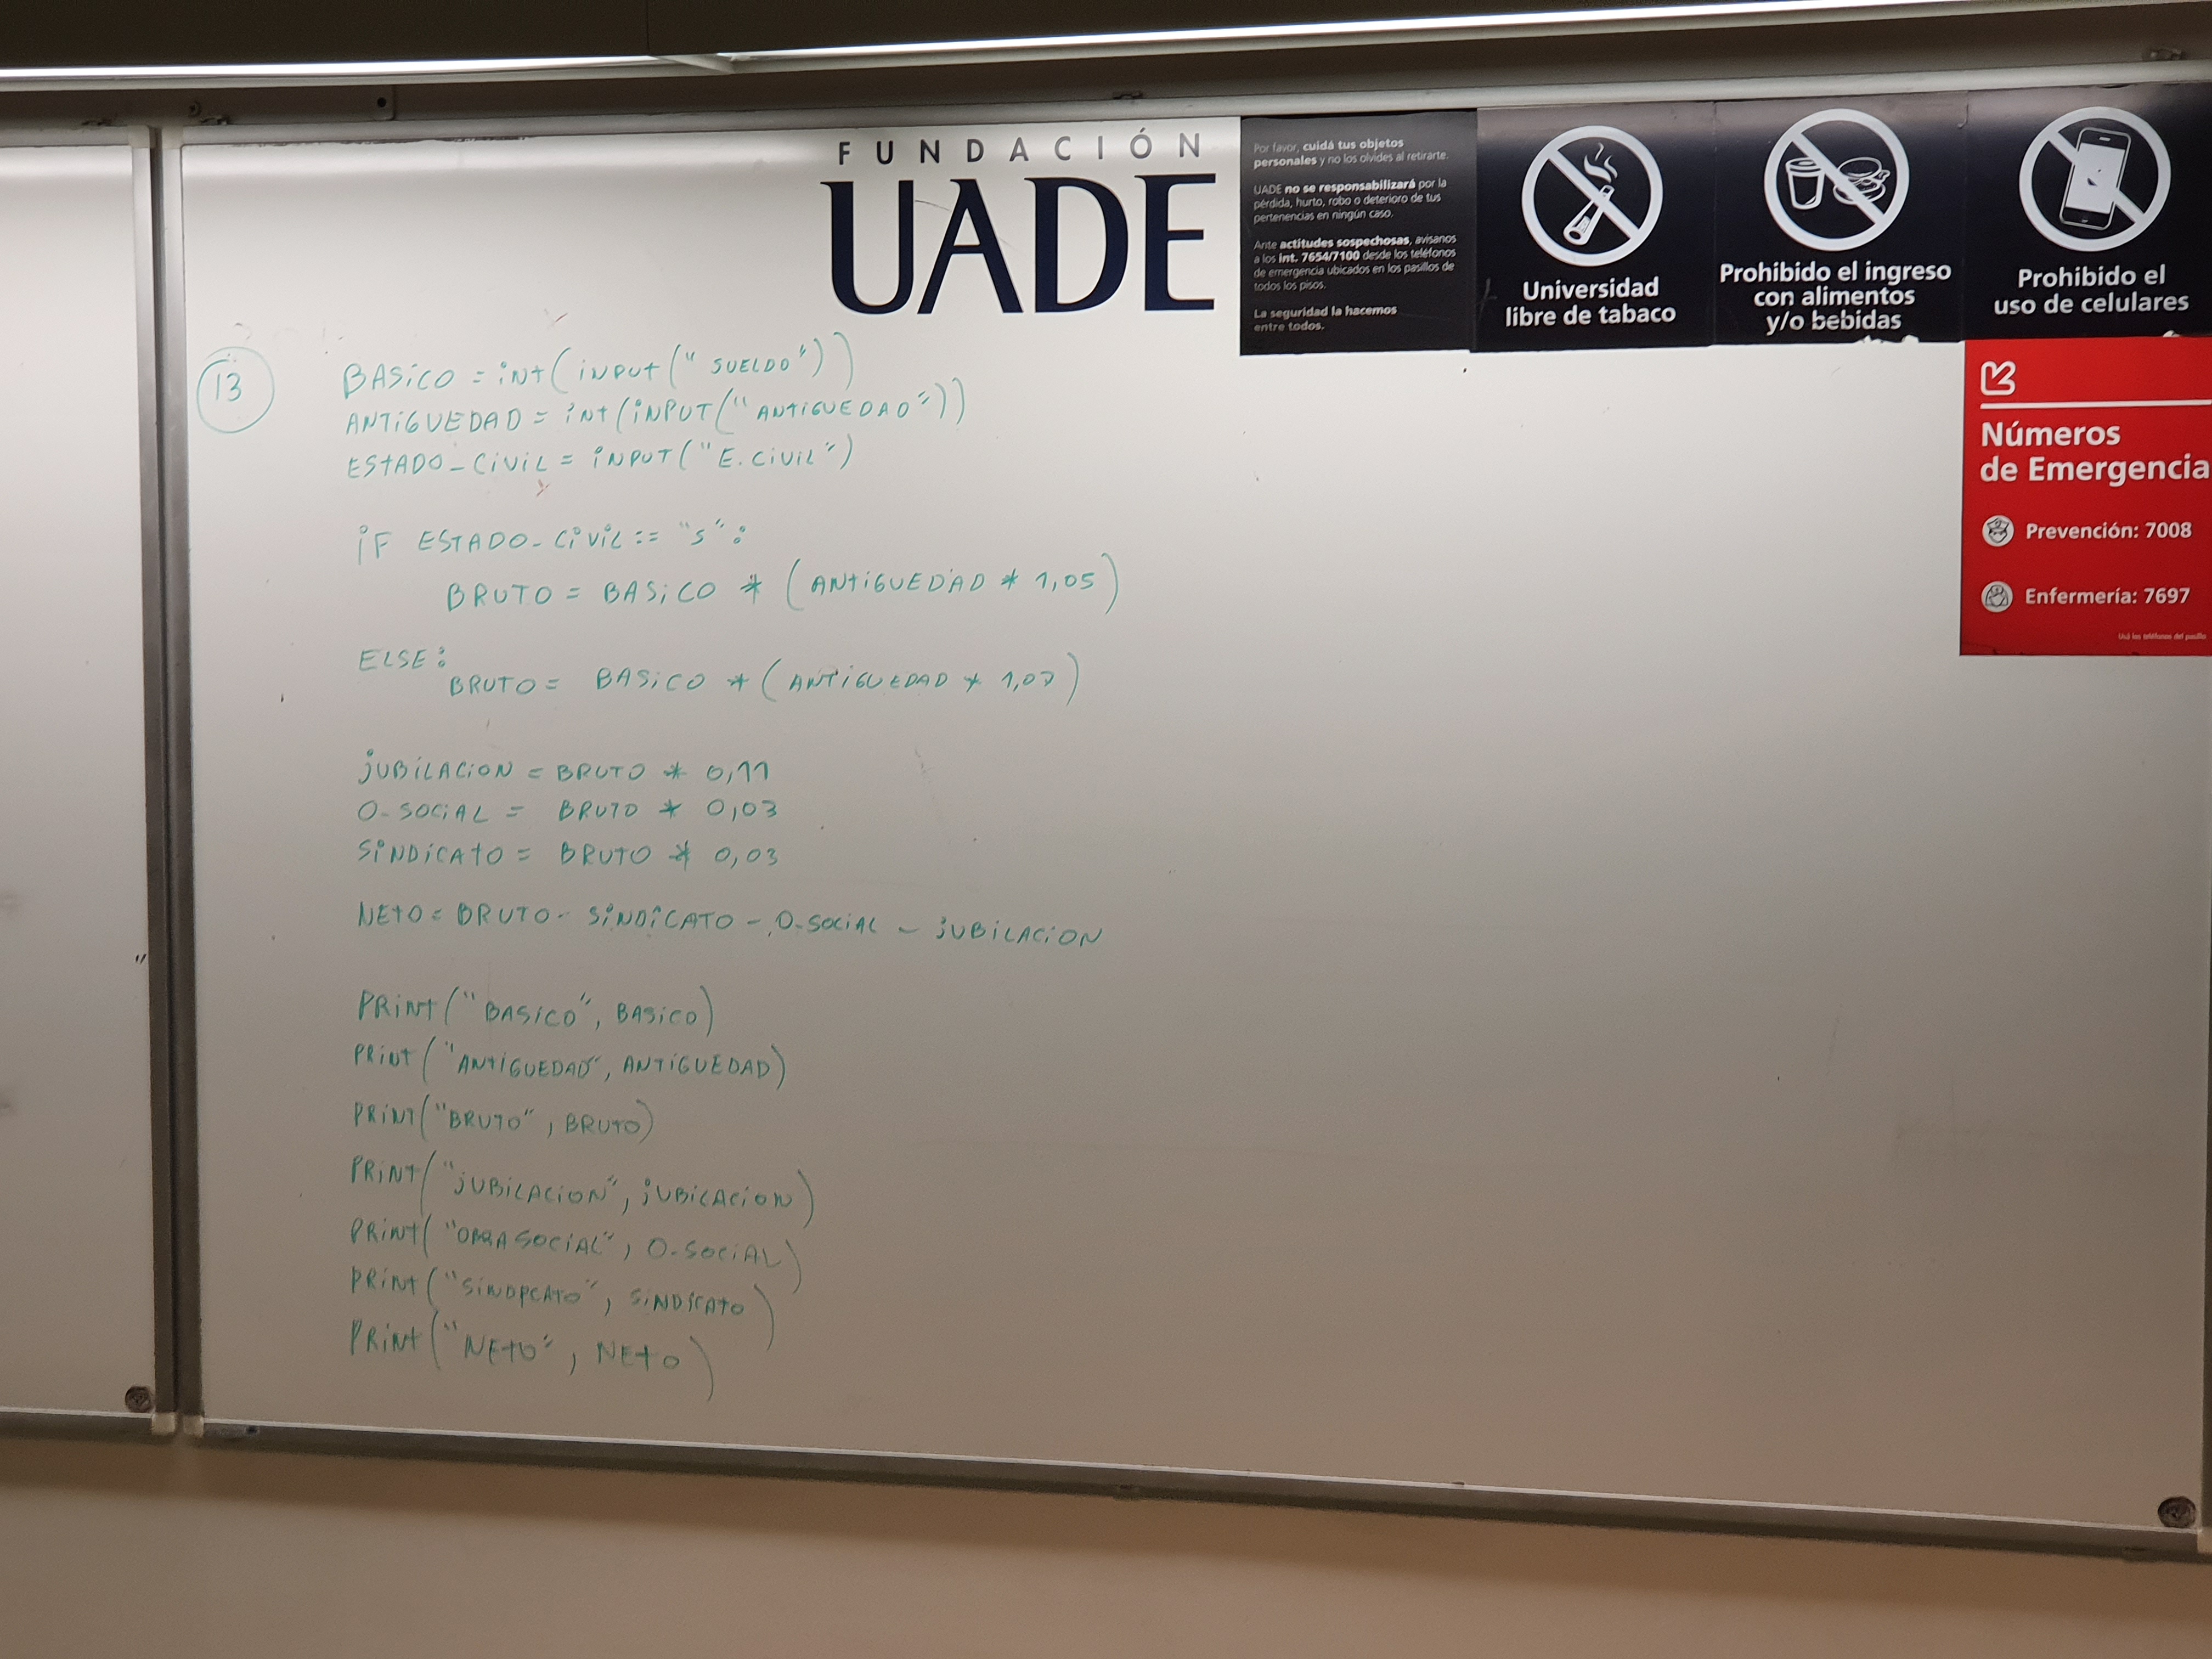 FUNDACIÓN
UADE
Por favor, cuidá tus objetos
personales y no los olvides al retirarte.
UADE no se responsabilizará por la
pérdida, hurto, robo o deterioro de tus
pertenencias en ningún caso.
Ante actitudes sospechosas, avisanos
a los int. 7654/7100 desde los teléfonos
de emergencia ubicados en los pasillos de
todos los pisos.
La seguridad la hacemos
entre todos.
Universidad
libre de tabaco
Prohibido el ingreso
con alimentos
y/o bebidas
Prohibido el
uso de celulares
Números
de Emergencia
Prevención: 7008
Enfermería: 7697
Usá los teléfonos del pasillo
13
BASiCO = iNt(iNPUt("SUELDO"))
ANtiGUEDAD = iNt(iNPUT("ANtiGUEDAD"))
EStADO_CiViL = iNPUT("E.CiViL")
iF ESTADO_CiViL == "S":
BRUTO = BASiCO * (ANtiGUEDAD * 1,05)
ELSE:
BRUTO = BASiCO * (ANTiGUEDAD * 1,07)
jUBiLACiON = BRUTO * 0,11
O_SOCiAL = BRUTO * 0,03
SiNDiCAtO = BRUTO * 0,03
NEtO = BRUTO - SiNDiCATO - O_SOCiAL - jUBiLACiON
PRiNt("BASiCO", BASiCO)
PRiNt("ANtiGUEDAD", ANTiGUEDAD)
PRiNT("BRUTO", BRUtO)
PRiNT("jUBiLACiON", jUBiLACiON)
PRiNt("OBRA SOCiAL", O_SOCiAL)
PRiNt("SiNDiCAtO", SiNDiCAtO)
PRiNt("NEtO", NEtO)